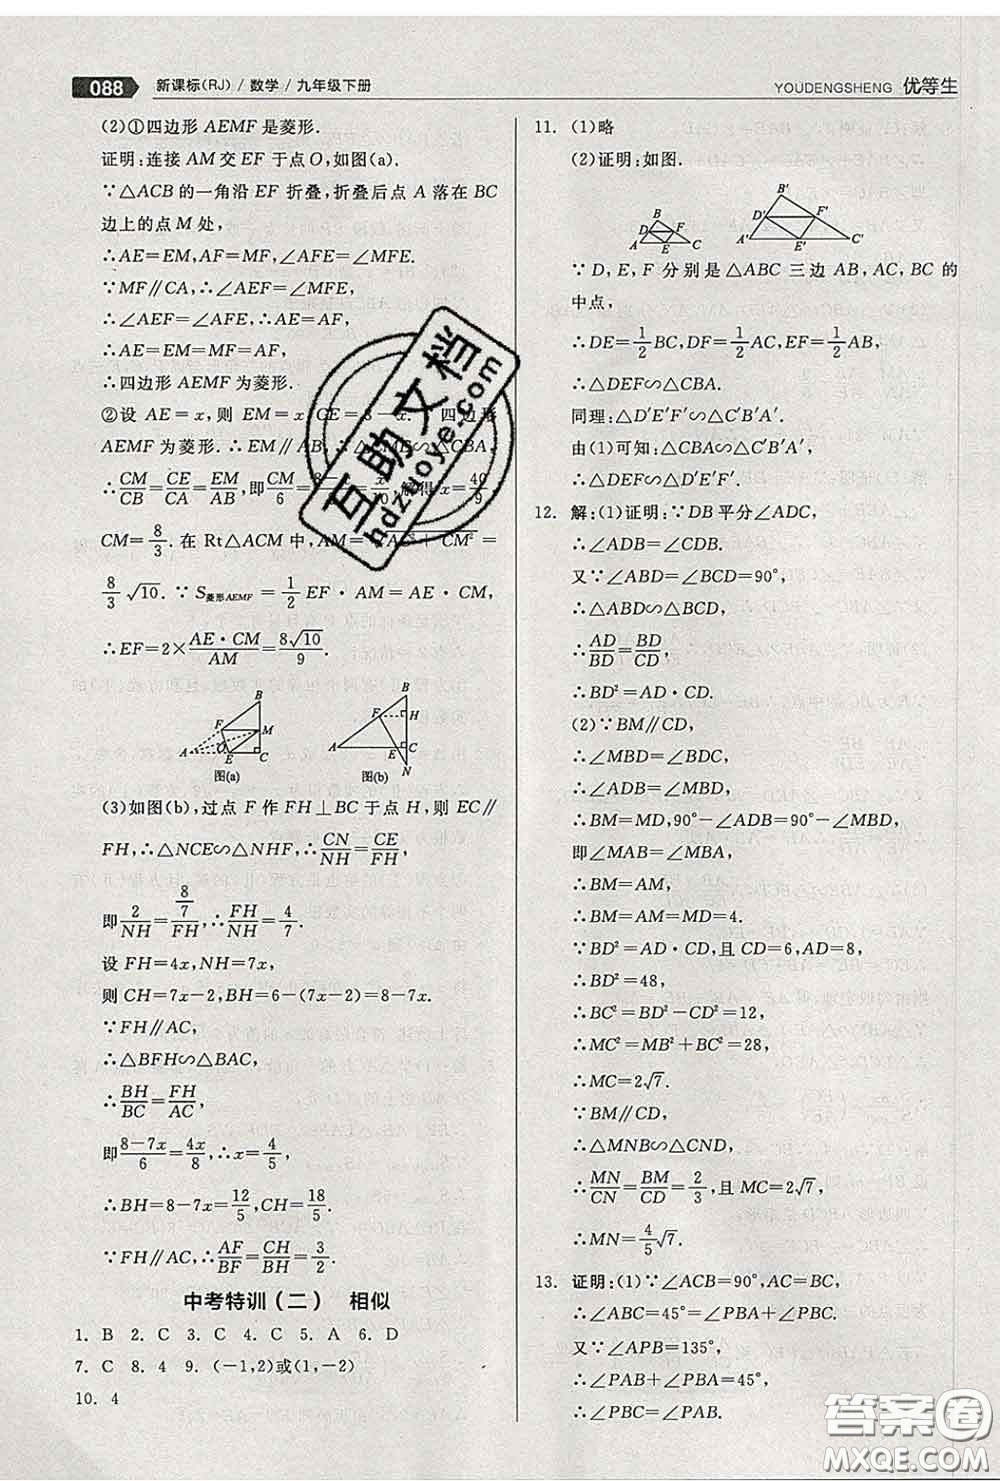 088 新课标(RJ) / 数学 / 九年级下册
YOUDENGSHENG 优等生
(2)①四边形 AEMF 是菱形.
证明:连接 AM 交 EF 于点 O,如图(a).
∵△ACB 的一角沿 EF 折叠,折叠后点 A 落在 BC
边上的点 M 处,
∴AE=EM,AF=MF,∠AFE=∠MFE.
∵MF∥CA,∴∠AEF=∠MFE,
∴∠AEF=∠AFE,∴AE=AF,
∴AE=EM=MF=AF,
∴四边形 AEMF 为菱形.
②设 AE=x,则 EM=x,CE=8-x. 四边形
AEMF 为菱形.∴EM∥AB,∴△CME∽△CBA,
∴CM/CB=CE/CA=EM/AB,即CM/6=8-x/8=x/10,解得x=40/9
CM=8/3.在 Rt△ACM 中,AM=√AC²+CM²=
8/3√10.∵S菱形AEMF=1/2EF·AM=AE·CM,
∴EF=2×AE·CM/AM=8√10/9.
B F M A O E C
图(a)
B F H A E C N
图(b)
(3)如图(b),过点 F 作 FH⊥BC 于点 H,则 EC∥
FH,∴△NCE∽△NHF,∴CN/NH=CE/FH,
即2/NH=8/7/FH,∴FH/NH=4/7.
设 FH=4x,NH=7x,
则 CH=7x-2,BH=6-(7x-2)=8-7x.
∵FH∥AC,
∴△BFH∽△BAC,
∴BH/BC=FH/AC,
即8-7x/6=4x/8,∴x=2/5,
∴BH=8-7x=12/5,CH=18/5.
∵FH∥AC,∴AF/BF=CH/BH=3/2.
中考特训(二) 相似
1. B 2. C 3. C 4. C 5. A 6. D
7. C 8. 4 9. (-1,2)或(1,-2)
10. 4
11. (1)略
(2)证明:如图.
B D F A E C
B′ D′ F′ A′ E′ C′
∵D,E,F 分别是△ABC 三边 AB,AC,BC 的
中点,
∴DE=1/2BC,DF=1/2AC,EF=1/2AB,
∴△DEF∽△CBA.
同理:△D′E′F′∽△C′B′A′.
由(1)可知:△CBA∽△C′B′A′,
∴△DEF∽△D′E′F′.
12. 解:(1)证明:∵DB平分∠ADC,
∴∠ADB=∠CDB.
又∵∠ABD=∠BCD=90°,
∴△ABD∽△BCD,
∴AD/BD=BD/CD,
∴BD²=AD·CD.
(2)∵BM∥CD,
∴∠MBD=∠BDC,
∴∠ADB=∠MBD,
∴BM=MD,90°-∠ADB=90°-∠MBD,
即∠MAB=∠MBA,
∴BM=AM,
∴BM=AM=MD=4.
∵BD²=AD·CD,且 CD=6,AD=8,
∴BD²=48,
∴BC²=BD²-CD²=12,
∴MC²=MB²+BC²=28,
∴MC=2√7.
∵BM∥CD,
∴△MNB∽△CND,
∴MN/CN=BM/CD=2/3,且 MC=2√7,
∴MN=4/5√7.
13. 证明:(1)∵∠ACB=90°,AC=BC,
∴∠ABC=45°=∠PBA+∠PBC.
又∵∠APB=135°,
∴∠PAB+∠PBA=45°,
∴∠PBC=∠PAB.
互助文档
hdzuoye.com
答案圈
MXQE.COM